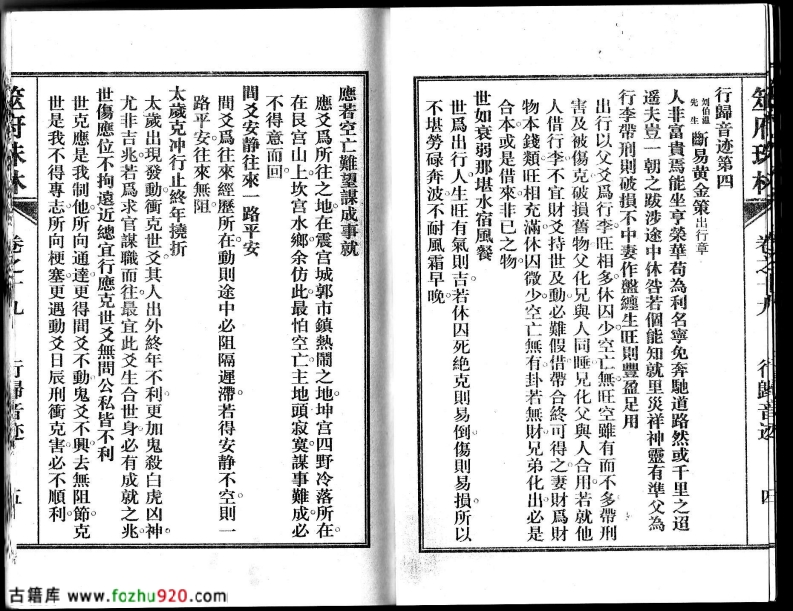 筮府珠林
卷之十九
行歸音迹
四
行歸音迹第四
刘伯溫先生
斷易黄金策出行章
人非富貴焉能坐亨榮華苟為利名寧免奔馳道路然或千里之迢
遥夫豈一朝之跋涉途中休咎若個能知就里災祥神靈有準父為
行李帶刑則破損不中妻作盤纏生旺則豐盈足用
出行以父爻爲行李旺相多休囚少空亡無旺空雖有而不多帶刑
害及被傷克破損舊物父化兄與人同睡兄化父與人合用若就他
人借行李不宜財爻持世及動必難假借帶合終可得之妻財爲財
物本錢類旺相充滿休囚微少空亡無有卦若無財兄弟化出必是
合本或是借來非已之物
世如衰弱那堪水宿風餐
世爲出行人生旺有氣則吉若休囚死絶克則易倒傷則易損所以
不堪勞碌奔波不耐風霜早晚
應若空亡難望謀成事就
應爻爲所往之地在震宫城郭市鎮熱鬧之地坤宫四野冷落所在
在艮宫山上坎宫水鄉余仿此最怕空亡主地頭寂寞謀事難成必
不得意而回
間爻安静往來一路平安
間爻爲往來經歷所在動則途中必阻隔遲滯若得安静不空則一
路平安往來無阻
太歲克冲行止終年撓折
太歲出現發動衝克世爻其人出外終年不利更加鬼殺白虎凶神
尤非吉兆若爲求官謀職而往最宜此爻生合世身必有成就之兆
世傷應位不拘遠近總宜行應克世爻無問公私皆不利
世克應是我制他所向通達更得間爻不動鬼爻不興去無阻節克
世是我不得專志所向梗塞更遇動爻日辰刑衝克害必不順利
筮府珠林
卷之十九
行歸音迹
五
古籍库 www.fozhu920.com